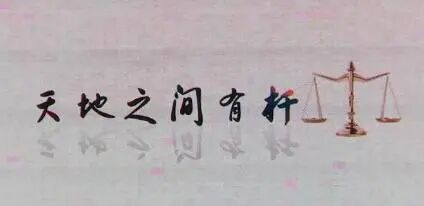 天地之间有杆